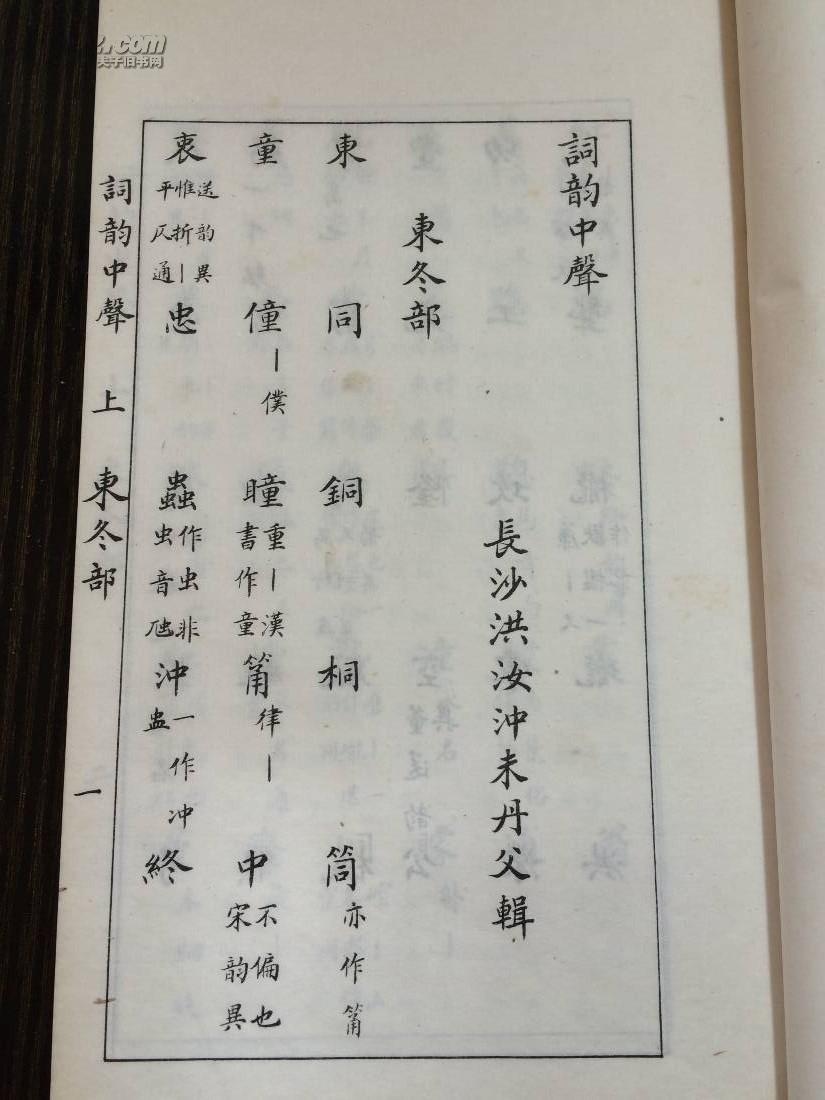 詞韵中聲
長沙洪汝沖未丹父輯
東冬部
東 同 銅 桐 筒亦作箾
童 僮｜僕 瞳重｜漢書作童 箾律｜ 中不偏也宋韵異
衷送韵異惟折｜平仄通 忠 蟲作虫非虫音虺 沖一作冲盅 終
詞韵中聲 上 東冬部 一
.com
夫子旧书网